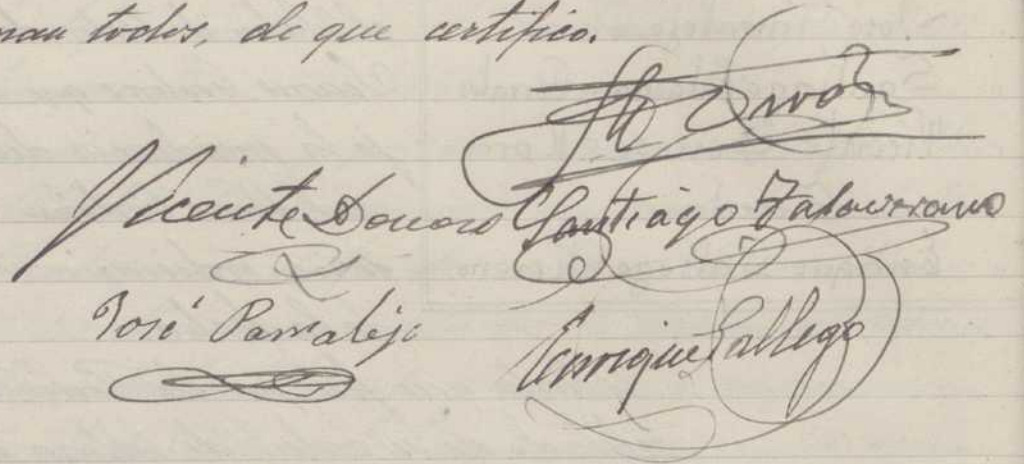 man todos, de que certifico.
Vicente Donoso Santiago Talaverano
José Parralejo
Enrique Gallego